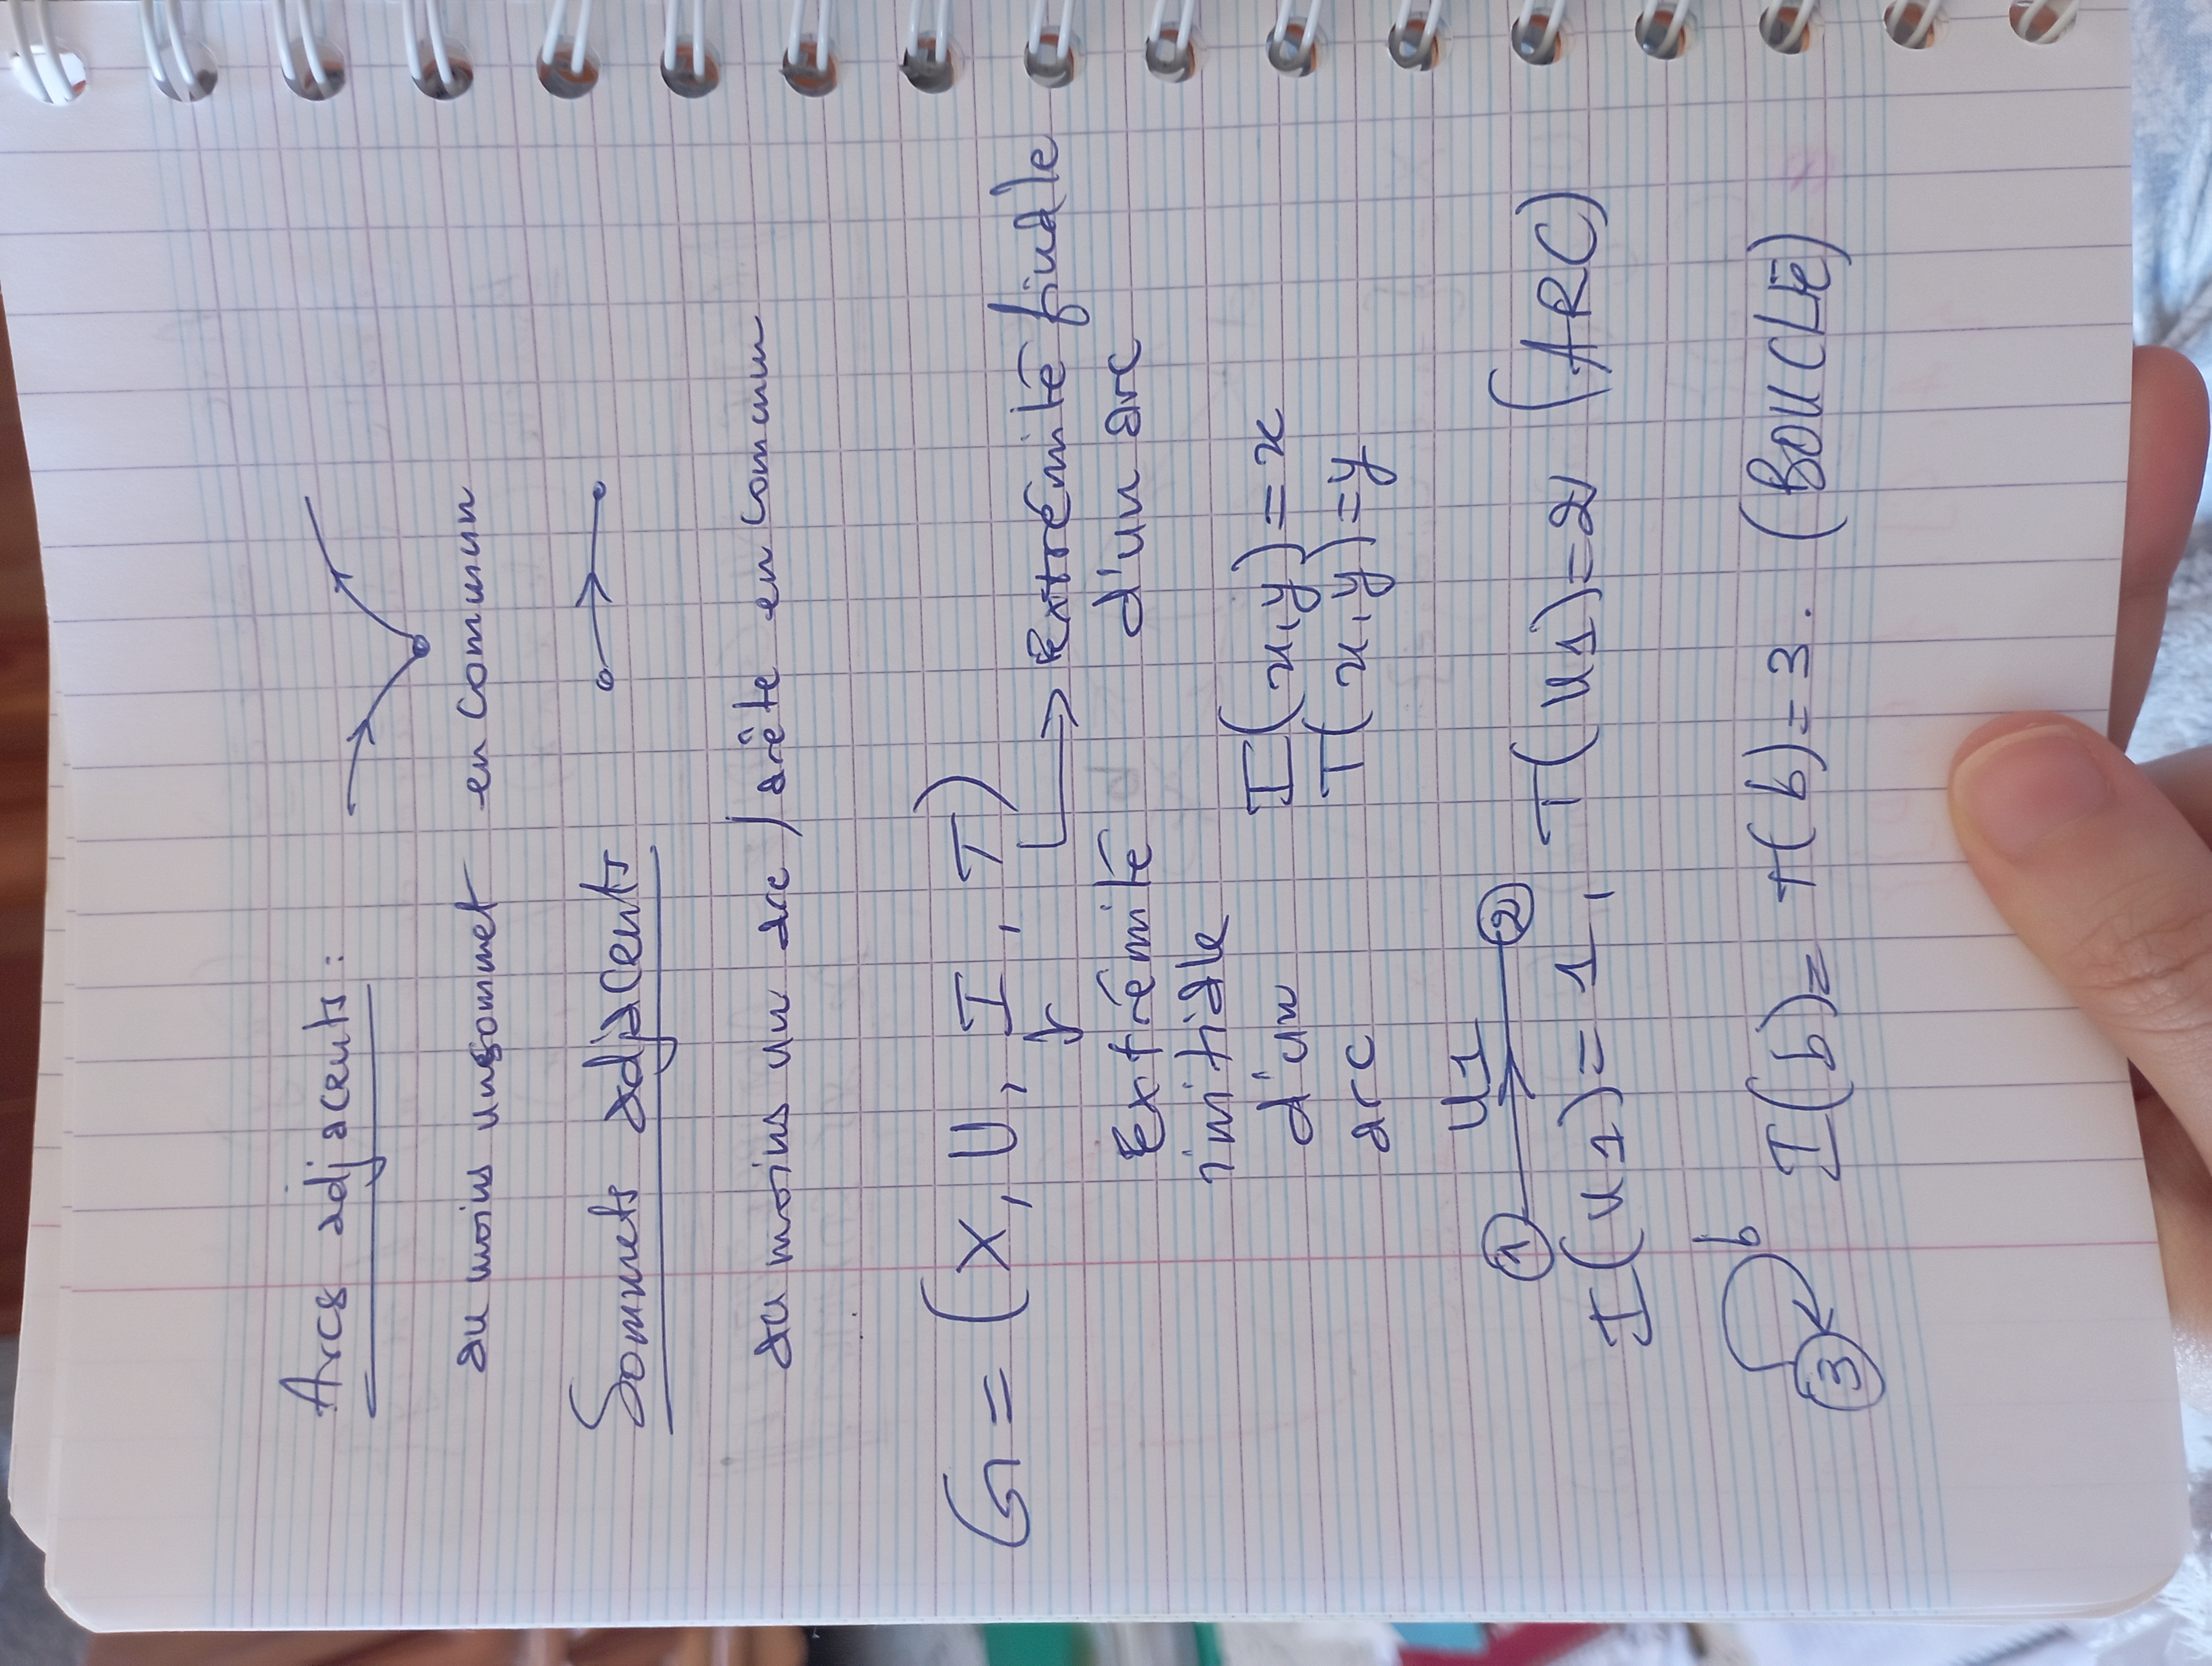 Arcs adjacents :
au moins un sommet en commun
Sommets adjacents
au moins un arc / arête en commun
G = (X, U, I, T)
Extrémité finale
d'un arc
Extrémité
initiale
d'un
arc
I(x,y) = x
T(x,y) = y
u1
1 2
I(u1) = 1, T(u1) = 2 (ARC)
b
3 I(b) = T(b) = 3. (BOUCLE)